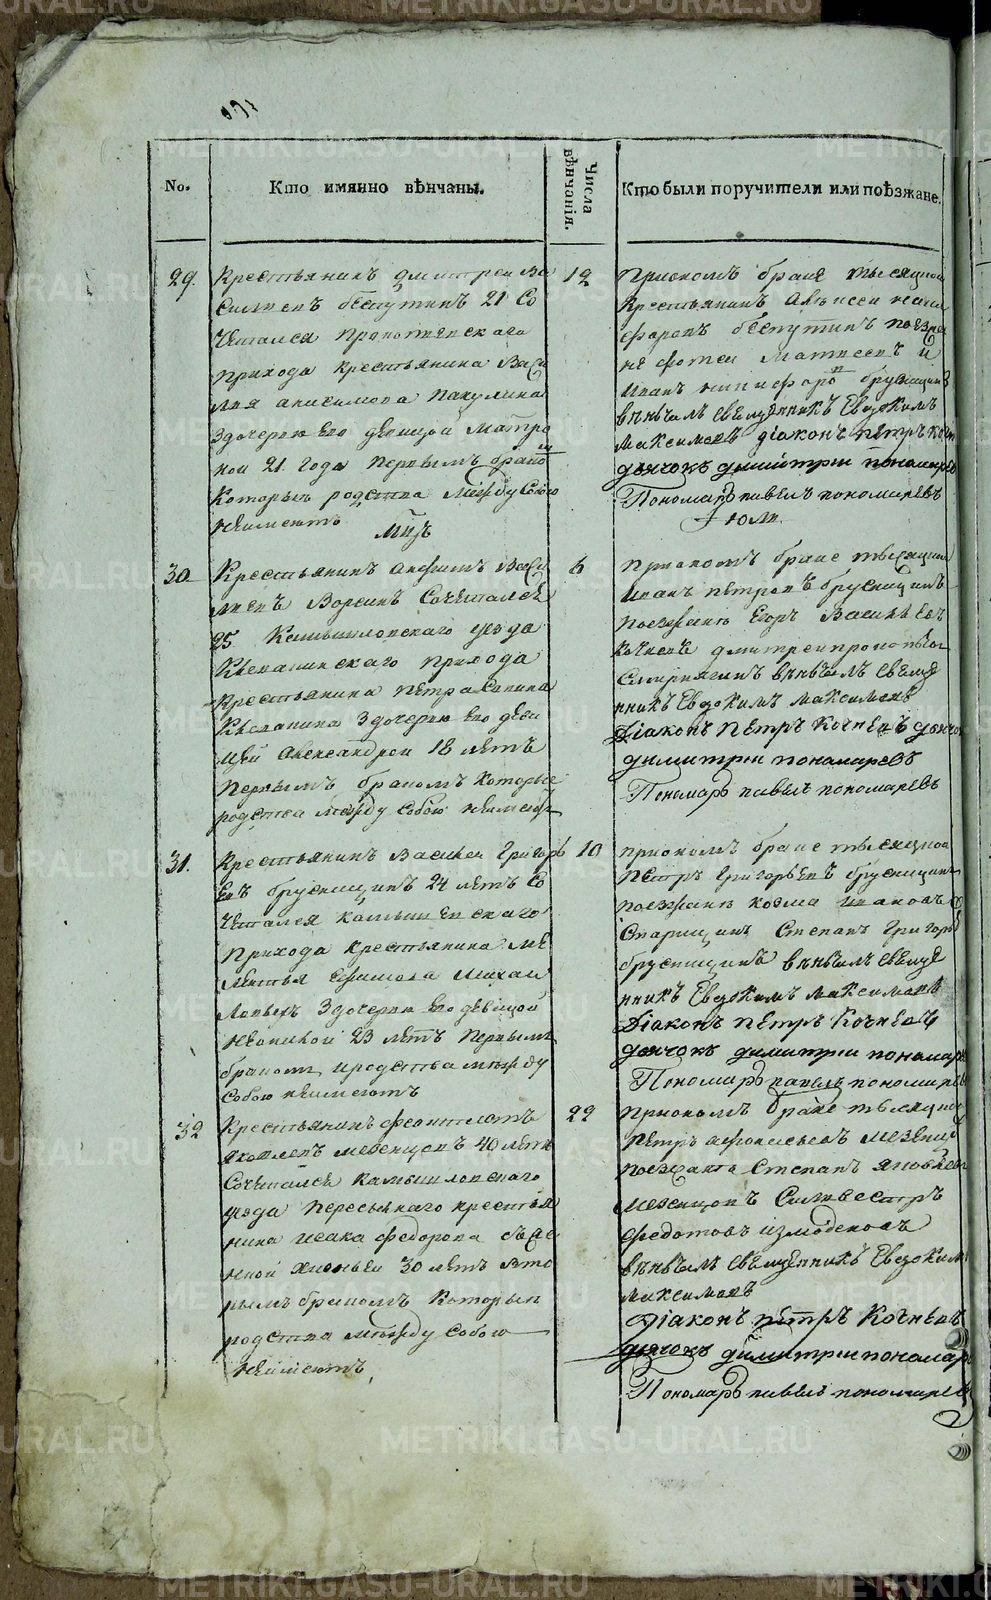 No.
Кто имянно вѣнчаны.
Числа вѣнчанія.
Кто были поручители или поѣзжане.
29.
Крестьянинъ Дмитреи Ва
сильевъ 21 со
четался
прихода крестьянина Васи
лия анисимова Пакулина
здочерью его девицой Матре
ной 21 года первымъ бракомъ
которыи родства между собою
неимеютъ
12
приономъ браке тысяцкой
крестьянинъ Алексеи
поезжа
не фотеи Матвеевъ и
Иванъ никифоровъ брусницинъ
вѣнчалъ священникъ Евдокимъ
Максимовъ діаконъ петръ Кочневъ
дьячокъ димитрии пономаревъ
Пономарь павелъ пономаревъ
Юли.
Мцъ
30
Крестьянинъ Васи
льевъ Ворсинъ Сочетался
25 Камышловского уезда
прихода
крестьянина петра
здочерью его деви
цей Александрой 18 летъ
первымъ бракомъ которые
родства между собою неимеютъ
6
приономъ браке тысяцкии
иванъ петровъ брусницинъ
поезжане Егоръ Васильевъ
Кочневъ дмитреи прокопьевъ
вѣнчалъ священ
никъ Евдокимъ Максимовъ
Діаконъ Петръ Кочневъ дьячокъ
димитрии пономаревъ
Пономарь павелъ пономаревъ
31.
Крестьянинъ Василеи Григорь
евъ брусницинъ 24 летъ со
четался камышевскаго
прихода крестьянина ме
лентья Ефимова
здочерью его девицой
23 летъ первымъ
бракомъ иродства между
собою неимеютъ
10
приономъ браке тысяцкой
Петръ григорьевъ брусницинъ
поезжане козма ивановъ
Старицинъ Степанъ Григорьевъ
брусницинъ вѣнчалъ священ
никъ Евдокимъ Максимовъ
Діаконъ петръ Кочневъ
дьячокъ димитрии пономаревъ
Пономарь павелъ пономаревъ
32
Крестьянинъ феоктистъ
яковлевъ мезенцовъ 40 летъ
Сочетался камышловского
уезда крестья
нина исака федорова
30 летъ вто
рымъ бракомъ которыи
родства между собою
неимеютъ.
22
приономъ браке тысяцкой
петръ мезенцовъ
поезжана Степанъ яковлевъ
мезенцовъ Силвестръ
федотовъ измоденовъ
вѣнчалъ священникъ Евдокимъ
максимовъ
Діаконъ петръ Кочневъ
дьячокъ димитрии пономаревъ
Пономарь павелъ пономаревъ